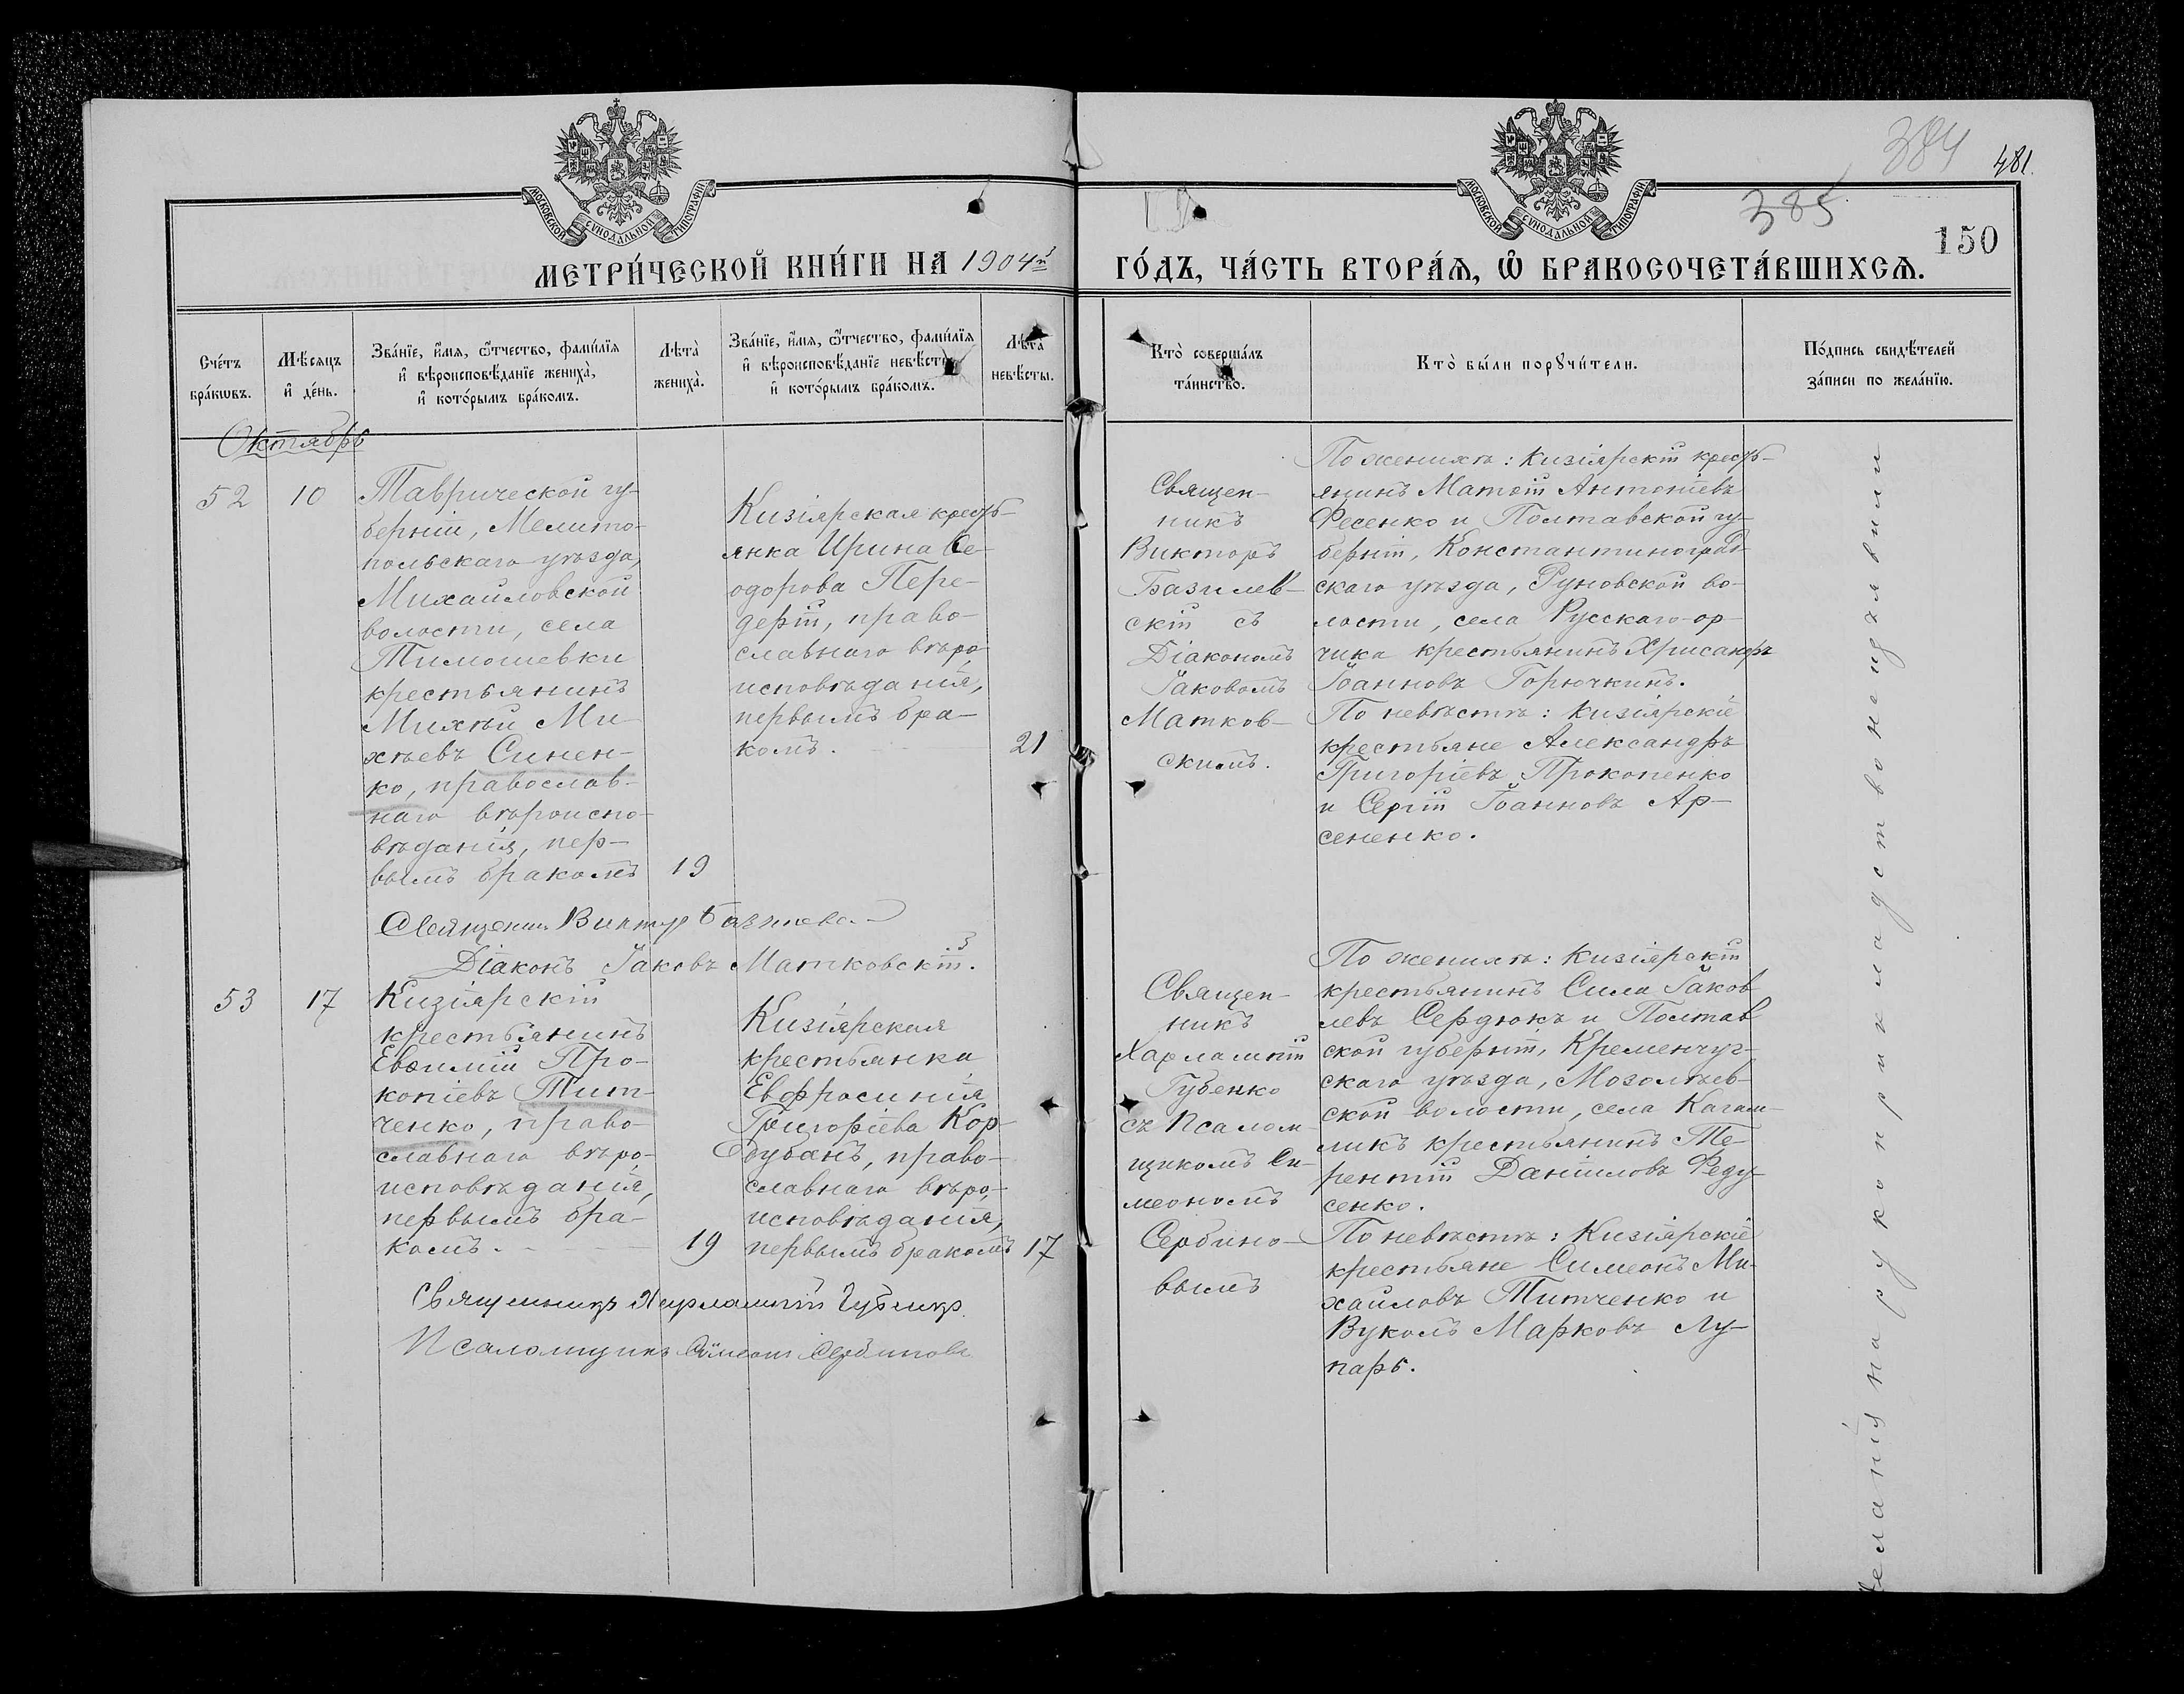 384
481.
385
150
МОСКОВСКОЙ СѴНОДАЛЬНОЙ ТИПОГРАФІИ
МОСКОВСКОЙ СѴНОДАЛЬНОЙ ТИПОГРАФІИ
МЕТРИ́ЧЕСКОЙ КНИ́ГИ НА 1904й
ГО́ДЪ, ЧА́СТЬ ВТОРА́Ѧ, Ѽ БРАКОСОЧЕТА́ВШИХСѦ.
Сче́тъ
бра́кѡвъ.
Мѣ́сяцъ
и҆ де́нь.
Зва́нїе, и҆́мя, ѻ҆́тчество, фами́лїя
и҆ вѣроисповѣ́данїе жениха̀,
и҆ кото́рымъ бра́комъ.
Лѣта̀
жениха̀.
Зва́нїе, и҆́мя, ѻ҆́тчество, фами́лїя
и҆ вѣроисповѣ́данїе невѣ́сты,
и҆ кото́рымъ бра́комъ.
Лѣта̀
невѣ́сты.
Кто̀ соверша́лъ
та́инство.
Кто̀ бы́ли порꙋчи́тели.
По́дпись свидѣ́телей
за́писи по жела́нїю.
Октябрь
52
10
Таврической гу-
берніи, Мелито-
польскаго уѣзда,
Михайловской
волости, села
Тимошевки
крестьянинъ
Михѣй Ми-
хѣевъ Синен-
ко, православ-
наго вѣроиспо-
вѣданія, пер-
вымъ бракомъ
19
Кизіярская кресть-
янка Ирина Ѳе-
одорова Пере-
дерій, право-
славнаго вѣро-
исповѣданія,
первымъ бра-
комъ.
21
Священ-
никъ
Викторъ
Базилев-
скій съ
Діакономъ
Іаковомъ
Матков-
скимъ.
По женихѣ: Кизіярскій кресть-
янинъ Матѳій Антоніевъ
Фесенко и Полтавской гу-
берніи, Константиноград-
скаго уѣзда, Руновской во-
лости, села Русскаго-ор-
чика крестьянинъ Хрисанфъ
Іоанновъ Горючкинъ.
По невѣстѣ: Кизіярскіе
крестьяне Александръ
Григоріевъ Прокопенко
и Сергій Іоанновъ Ар-
сененко.
Священникъ Викторъ Базилевс.
Діаконъ Іаковъ Матковскій.
53
17
Кизіярскій
крестьянинъ
Евѳимій Про-
копіевъ Тит-
ченко, право-
славнаго вѣро-
исповѣданія,
первымъ бра-
комъ.
19
Кизіярская
крестьянка
Евфросинія
Григоріева Кор-
дубанъ, право-
славнаго вѣро-
исповѣданія,
первымъ бракомъ
17
Священ-
никъ
Харлампій
Губенко
съ Псалом-
щикомъ Си-
меономъ
Сербино-
вымъ
По женихѣ: Кизіярскій
крестьянинъ Сила Іаков-
левъ Сердюкъ и Полтав-
ской губерніи, Кременчуг-
скаго уѣзда, Мозолѣев-
ской волости, села Кагам-
ликъ крестьянинъ Те-
рентій Даніиловъ Феду-
сенко.
По невѣстѣ: Кизіярскіе
крестьяне Симеонъ Ми-
хайловъ Титченко и
Вуколъ Марковъ Лу-
парь.
Священникъ Харлампій Губенко
Псаломщикъ Симеонъ Сербиновъ
желанія на рукоприкладство не изъявили